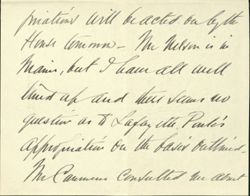 priations will be acted on by the
House tomorrow – Mr Nelson is in
Maine, but I have all well
lined up and there seems no
question as to Lafayette Park's
appropriation on the bases outlined.
Mr Cammerer consulted me about